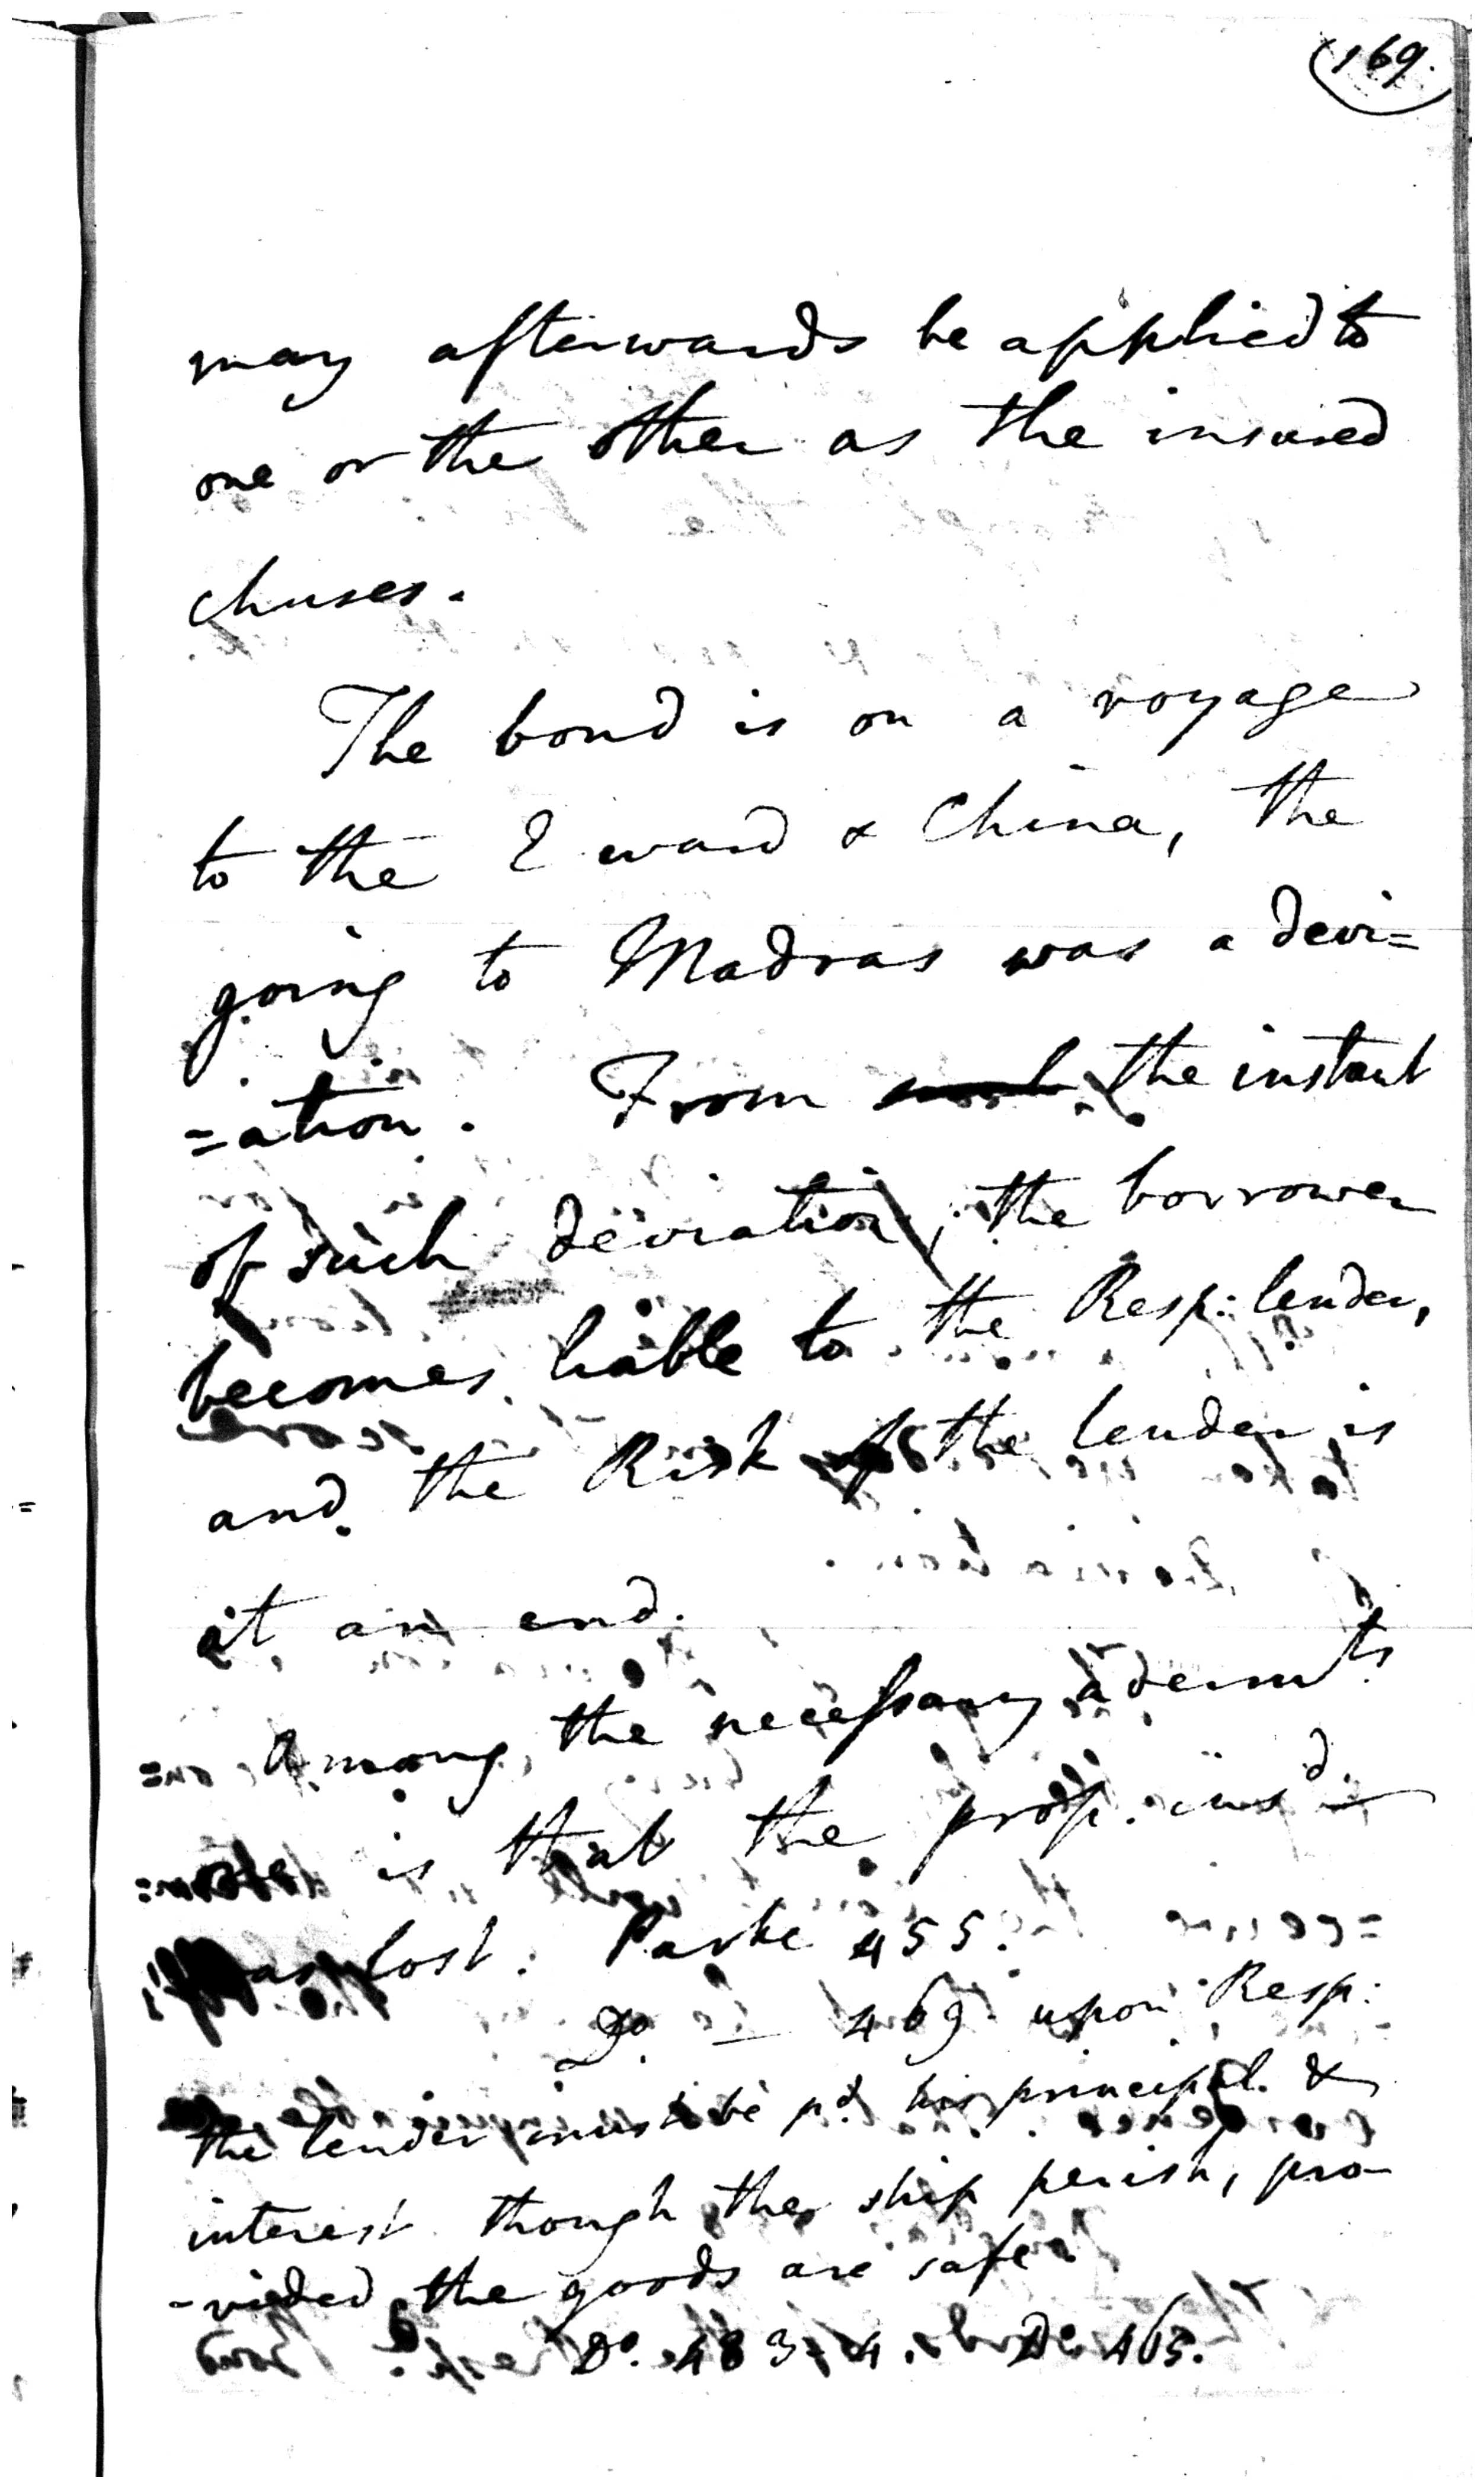 169.
may afterwards be applied to
one or the other as the insured
chuses.
The bond is on a voyage
to the E ward & China, the
going to Madras was a devi=
=ation. From the instant
of such deviation, the borrower
becomes liable to the Resp: lender,
and the Risk of the lender is
at an end.
Among the necessary
is that the prop. insd.
was lost. Parke 455.
Do. — 469. upon Resp:
the lender must be pd. his principal &
interest though the ship perish, pro-
-vided the goods are safe.
Do. 483-4. Do 465.